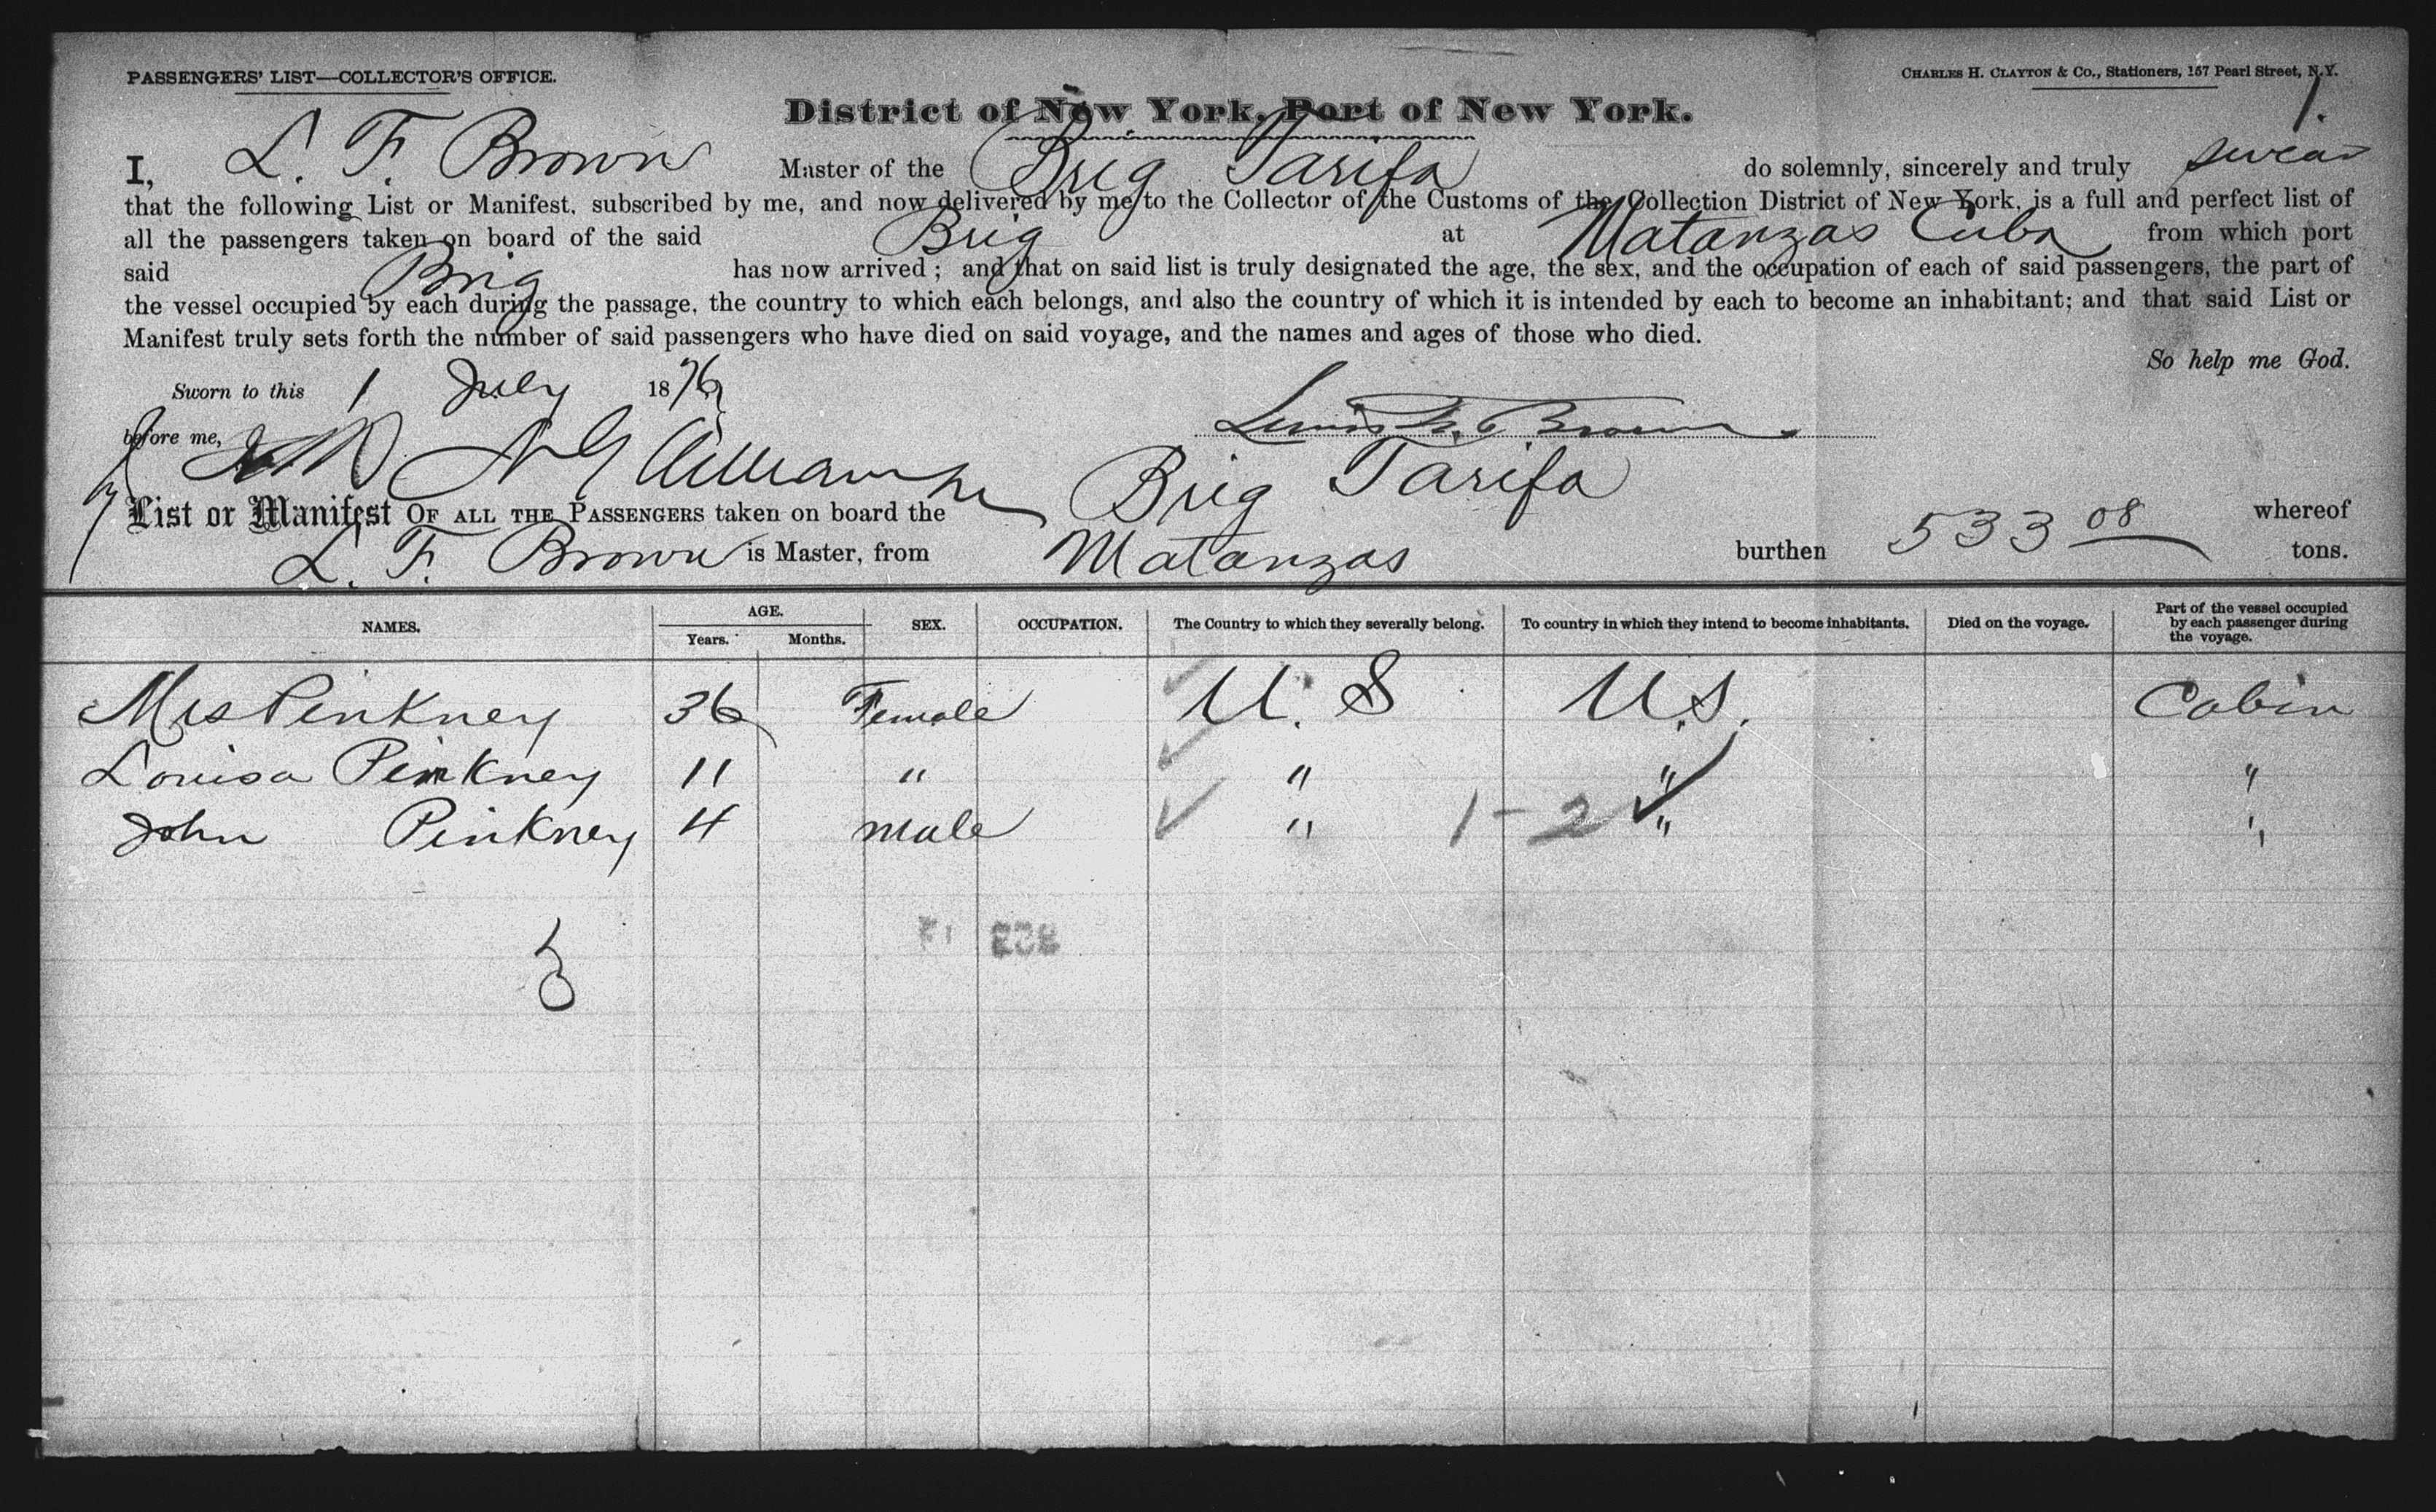 PASSENGERS' LIST—COLLECTOR'S OFFICE.
CHARLES H. CLAYTON & CO., Stationers, 157 Pearl Street, N.Y.
1.
District of New York, Port of New York.
I, L. F. Brown Master of the Brig Tarifa do solemnly, sincerely and truly swear
that the following List or Manifest, subscribed by me, and now delivered by me to the Collector of the Customs of the Collection District of New York, is a full and perfect list of
all the passengers taken on board of the said Brig at Matanzas Cuba from which port
said Brig has now arrived; and that on said list is truly designated the age, the sex, and the occupation of each of said passengers, the part of
the vessel occupied by each during the passage, the country to which each belongs, and also the country of which it is intended by each to become an inhabitant; and that said List or
Manifest truly sets forth the number of said passengers who have died on said voyage, and the names and ages of those who died.
So help me God.
Sworn to this 1 July 1876
before me, Brown
Williams
List or Manifest OF ALL THE PASSENGERS taken on board the Brig Tarifa whereof
L. F. Brown is Master, from Matanzas burthen 533 08 tons.
NAMES. AGE. Years. Months. SEX. OCCUPATION. The Country to which they severally belong. To country in which they intend to become inhabitants. Died on the voyage. Part of the vessel occupied by each passenger during the voyage.
Mrs Pinkney 36 Female U. S U.S. Cabin
Louisa Pinkney 11 " " " "
John Pinkney 4 male " 1-2 " "
3